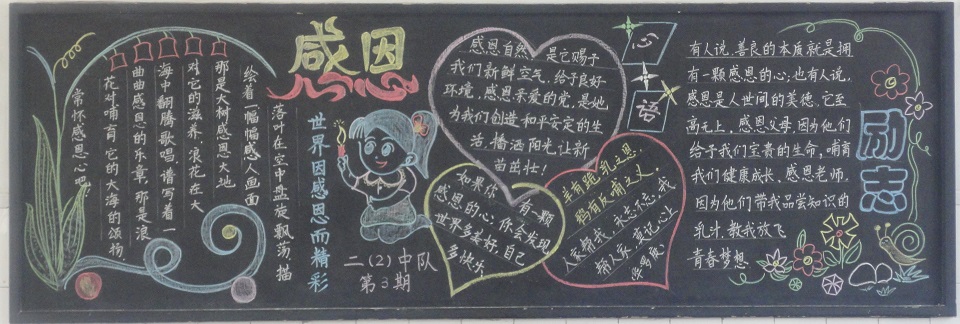 感因
世界因感恩而精彩
落叶在空中盘旋飘荡,描
绘着一幅幅感人画面
那是大树感恩大地
对它的滋养,浪花在大
海中翻腾歌唱,谱写着一
曲曲感恩的乐章,那是浪
花对哺有它的大海的颂扬
常怀感恩心吧
二(2)中队
第3期
感恩自然,是它赐于
我们新鲜空气,给于良好
环境,感恩亲爱的党,是她
为我们创造和平安定的生
活,播洒阳光让新
苗茁壮!
如果你有一颗
感恩的心,你会发现
世界多美好,自己
多快乐
羊有跪乳之恩,
鸦有反哺之义。
人家帮我,永志不忘,我
帮人家,莫记心上
华罗庚
心语
有人说,善良的本质就是拥
有一颗感恩的心;也有人说,
感恩是人世间的美德,它至
高无上,感恩父母,因为他们
给予我们宝贵的生命,哺育
我们健康成长,感恩老师,
因为他们带我品尝知识的
乳汁,教我放飞
青春梦想
励志